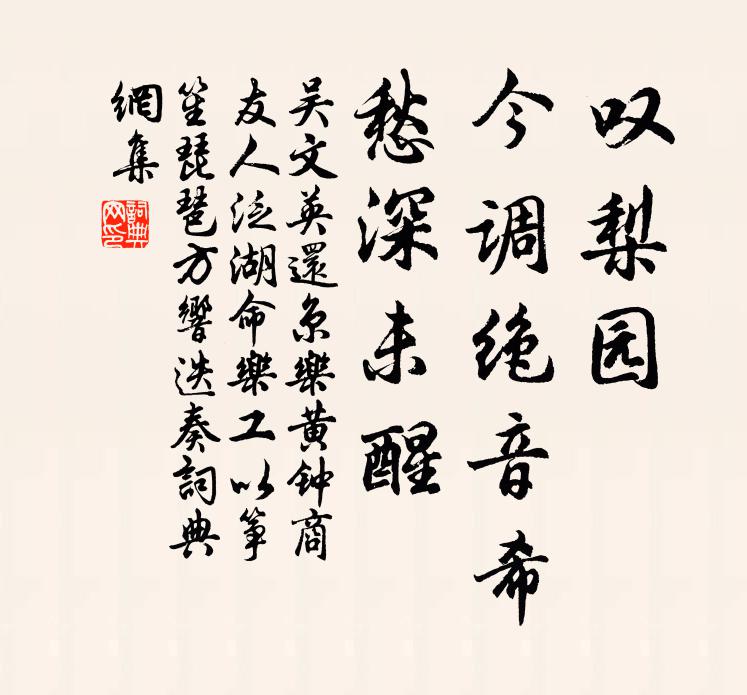 叹梨园
今调绝音希
愁深未醒
吴文英還京樂黄钟商
友人泛湖命樂工以筝
笙琵琶方響迭奏詞典
網集
詞典網印